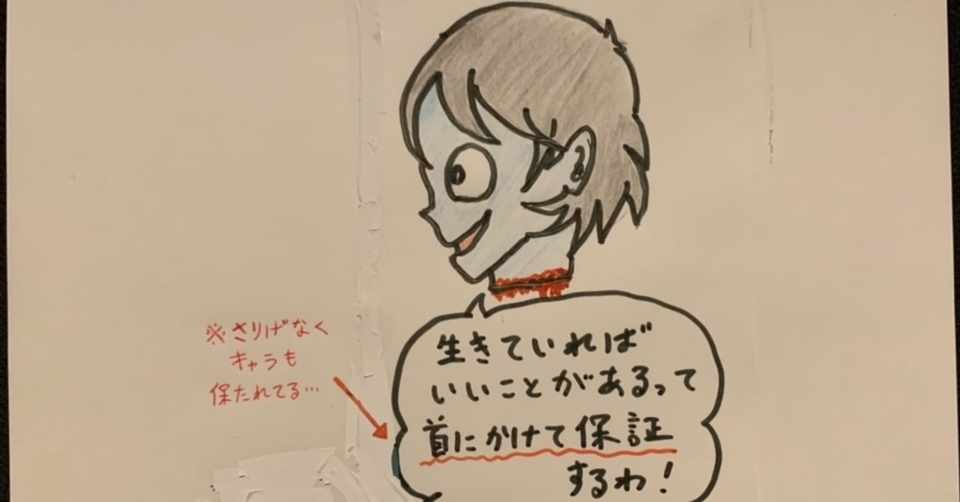 ※さりげなく
キャラも
保たれてる…
生きていれば
いいことがあるって
首にかけて保証
するわ!